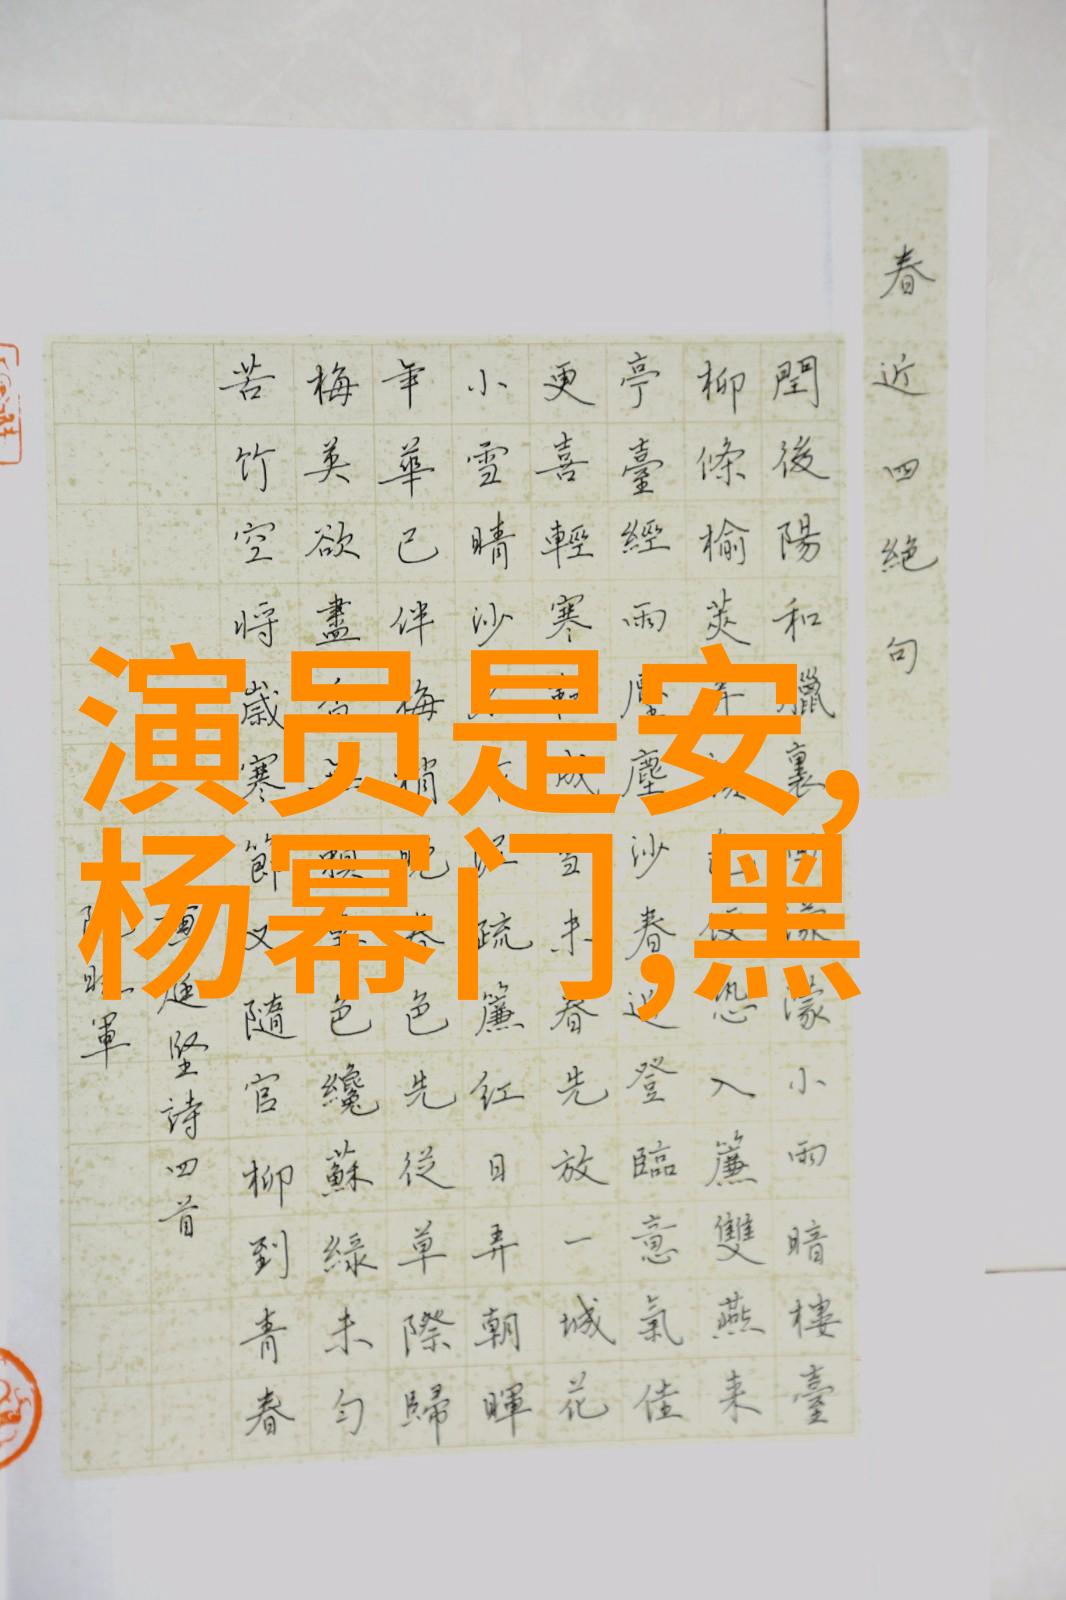 演员是安,
杨幂门,黑
春近四絕句
閏後陽和臘裏濛小雨暗樓臺
柳條榆莢恐入簾雙燕來
亭臺經雨塵沙春近登臨意氣佳
更喜輕寒成雪未春先放一城花
小雪晴沙泥疏簾紅日弄朝暉
年華已伴梅梢晚春色先從草際歸
梅英欲盡賴色纔蘇綠未勻
苦竹空將歲寒節又隨官柳到青春
庭堅詩四首
軍